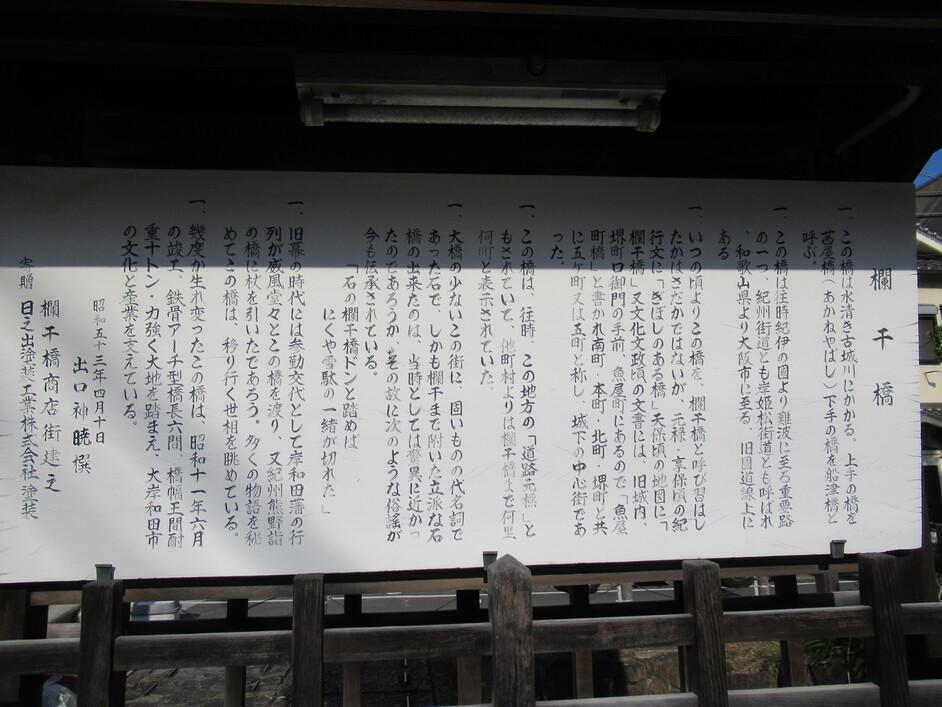 欄干橋
一、この橋は水清き古城川にかかる。上手の橋を
茜屋橋(あかねやばし)下手の橋を船津橋と
呼ぶ
一、この橋は往時紀伊の国より難波に至る重要路
の一つ、紀州街道とも岸姫松街道とも呼ばれ
、和歌山県より大阪市に至る、旧国道線上に
ある
一、いつの頃よりこの橋を、欄干橋と呼び習はし
たかはさだかではないが、元禄・享保頃の紀
行文に「ぎぼしのある橋」天保頃の地図に「
欄干橋」又文化文政頃の文書には、旧城内、
堺町口御門の手前、魚屋町にあるので「魚屋
町橋」と書かれ南町・本町・北町・堺町と共
に五ケ町又は五町と称し、城下の中心街であ
った。
一、この橋は、往時、この地方の「道路元標」と
もされていて、他町村よりは欄干橋まで何里
何町と表示されていた。
一、大橋の少ないこの街に、固いものの代名詞で
あった石で、しかも欄干まで附いた立派な石
橋の出来たのは、当時としては驚異に近かっ
たのであろうか、その故に次のような俗謡が
今も伝承されている。
「石の欄干橋ドンと踏めば
にくや雪駄の一緒が切れた」
一、旧幕の時代には参勤交代として岸和田藩の行
列が威風堂々とこの橋を渡り、又紀州熊野詣
の橋に杖を引いたであろう。多くの物語を秘
めてこの橋は、移り行く世相を眺めている。
一、幾度か生れ変ったこの橋は、昭和十一年六月
の竣工、鉄骨アーチ型橋長六間、橋幅五間耐
重十トン・力強く大地を踏まえ、大岸和田市
の文化と産業を支えている。
昭和五十三年四月十日
出口神暁 撰
欄干橋商店街建之
寄贈 日之出塗装工業株式会社塗装